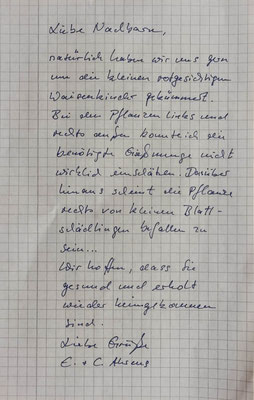 Liebe Nachbarn,
natürlich haben wir uns gern
um die kleinen rotgesichtigen
Waisenkinder gekümmert.
Bei den Pflanzen links und
rechts außen konnte ich die
benötigte Gießmenge nicht
wirklich einschätzen. Darüber
hinaus scheint die Pflanze
rechts von kleinen Blatt-
schädlingen befallen zu
sein...
Wir hoffen, dass Sie
gesund und erholt
wieder heimgekommen
sind.
Liebe Grüße
E. + C. Ahrens